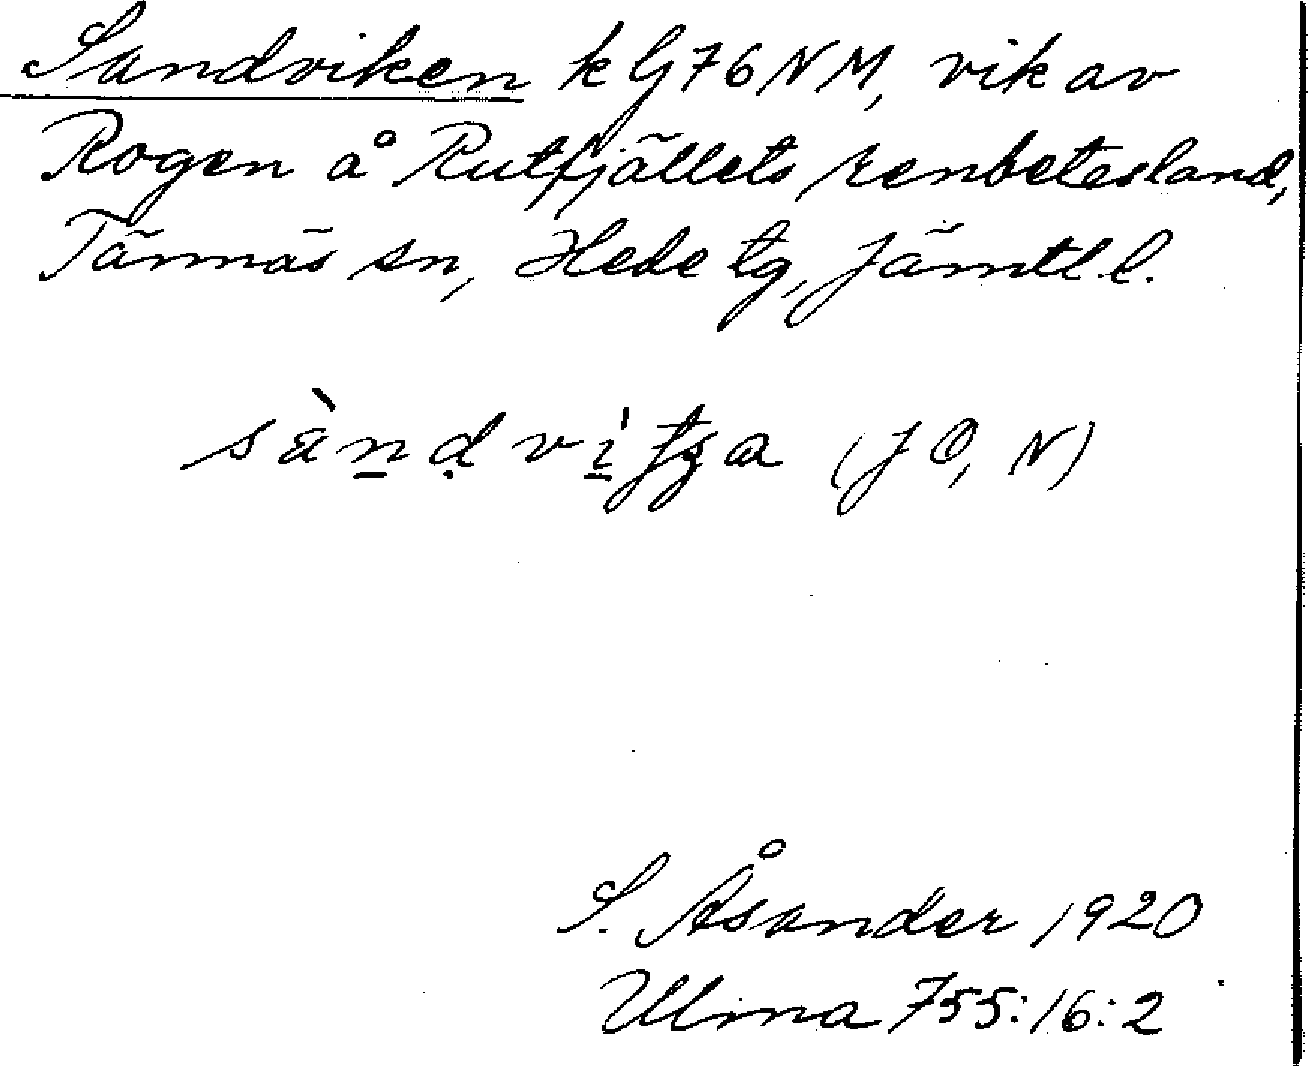 Sandviken k G76NM, vik av
Rogen å Rutfjällets renbetesland,
Tännäs sn, Hede tg, Jämtl l.
(JO, N)
S. Åsander 1920
Ulma 755:16:2